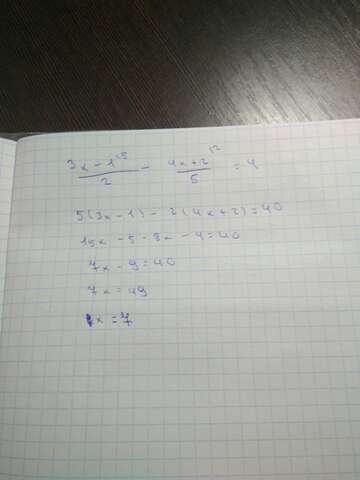 (3x-1)/2 ^5 - (4x+2)/5 ^2 = 4
5(3x-1) - 2(4x+2) = 40
15x - 5 - 8x - 4 = 40
7x - 9 = 40
7x = 49
x = 7